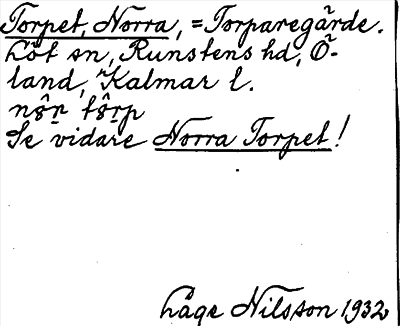 Torpet, Norra, = Torparegärde.
Löt sn, Runstens hd, Ö-
land, Kalmar l.
nôr tôrp
Se vidare Norra Torpet!
Låge Nilsson 1932